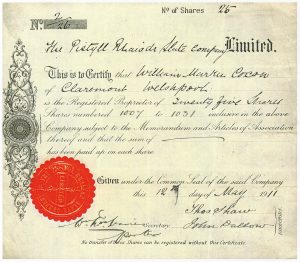 No of Shares 25
No 2/26
The Pistyll Rhaiadr Slate Company Limited.
This is to Certify that William Martin Cocow
of Claremont Welshpool
is the Registered Proprietor of Twenty Five Shares
Shares numbered 1007 to 1031 inclusive in the above
Company subject to the Memorandum and Articles of Association
thereof and that the sum of
has been paid up on each share
Given under the Common Seal of the said Company
this 12th day of May 1911
Thos Shaw
John
Directors
No transfer of these Shares can be registered without this Certificate.